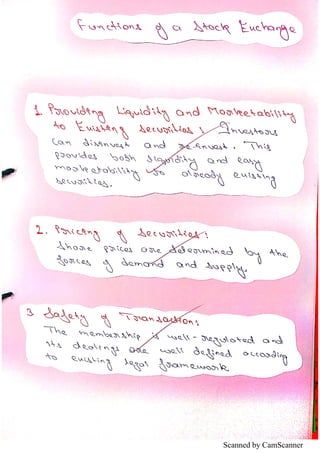 Functions of a Stock Exchange
1. Providing Liquidity and Marketability
to Existing Securities : Investors
can disinvest and re-invest. This
provides both liquidity and easy
marketability to already existing
securities.
2. Pricing of Securities :
Share prices are determined by the
forces of demand and supply.
3 Safety of Transaction :
The membership is well-regulated and
its dealings are well defined according
to existing legal framework
Scanned by CamScanner